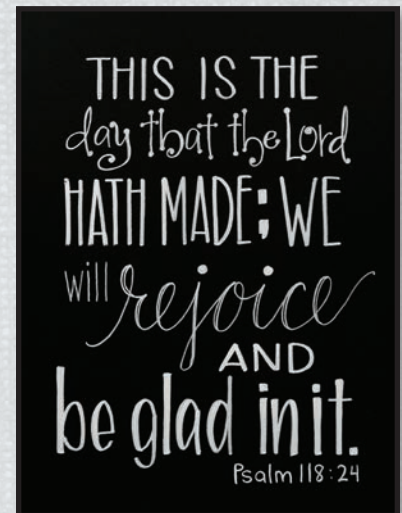 THIS IS THE
day that the Lord
HATH MADE; WE
will rejoice
AND
be glad in it.
Psalm 118:24